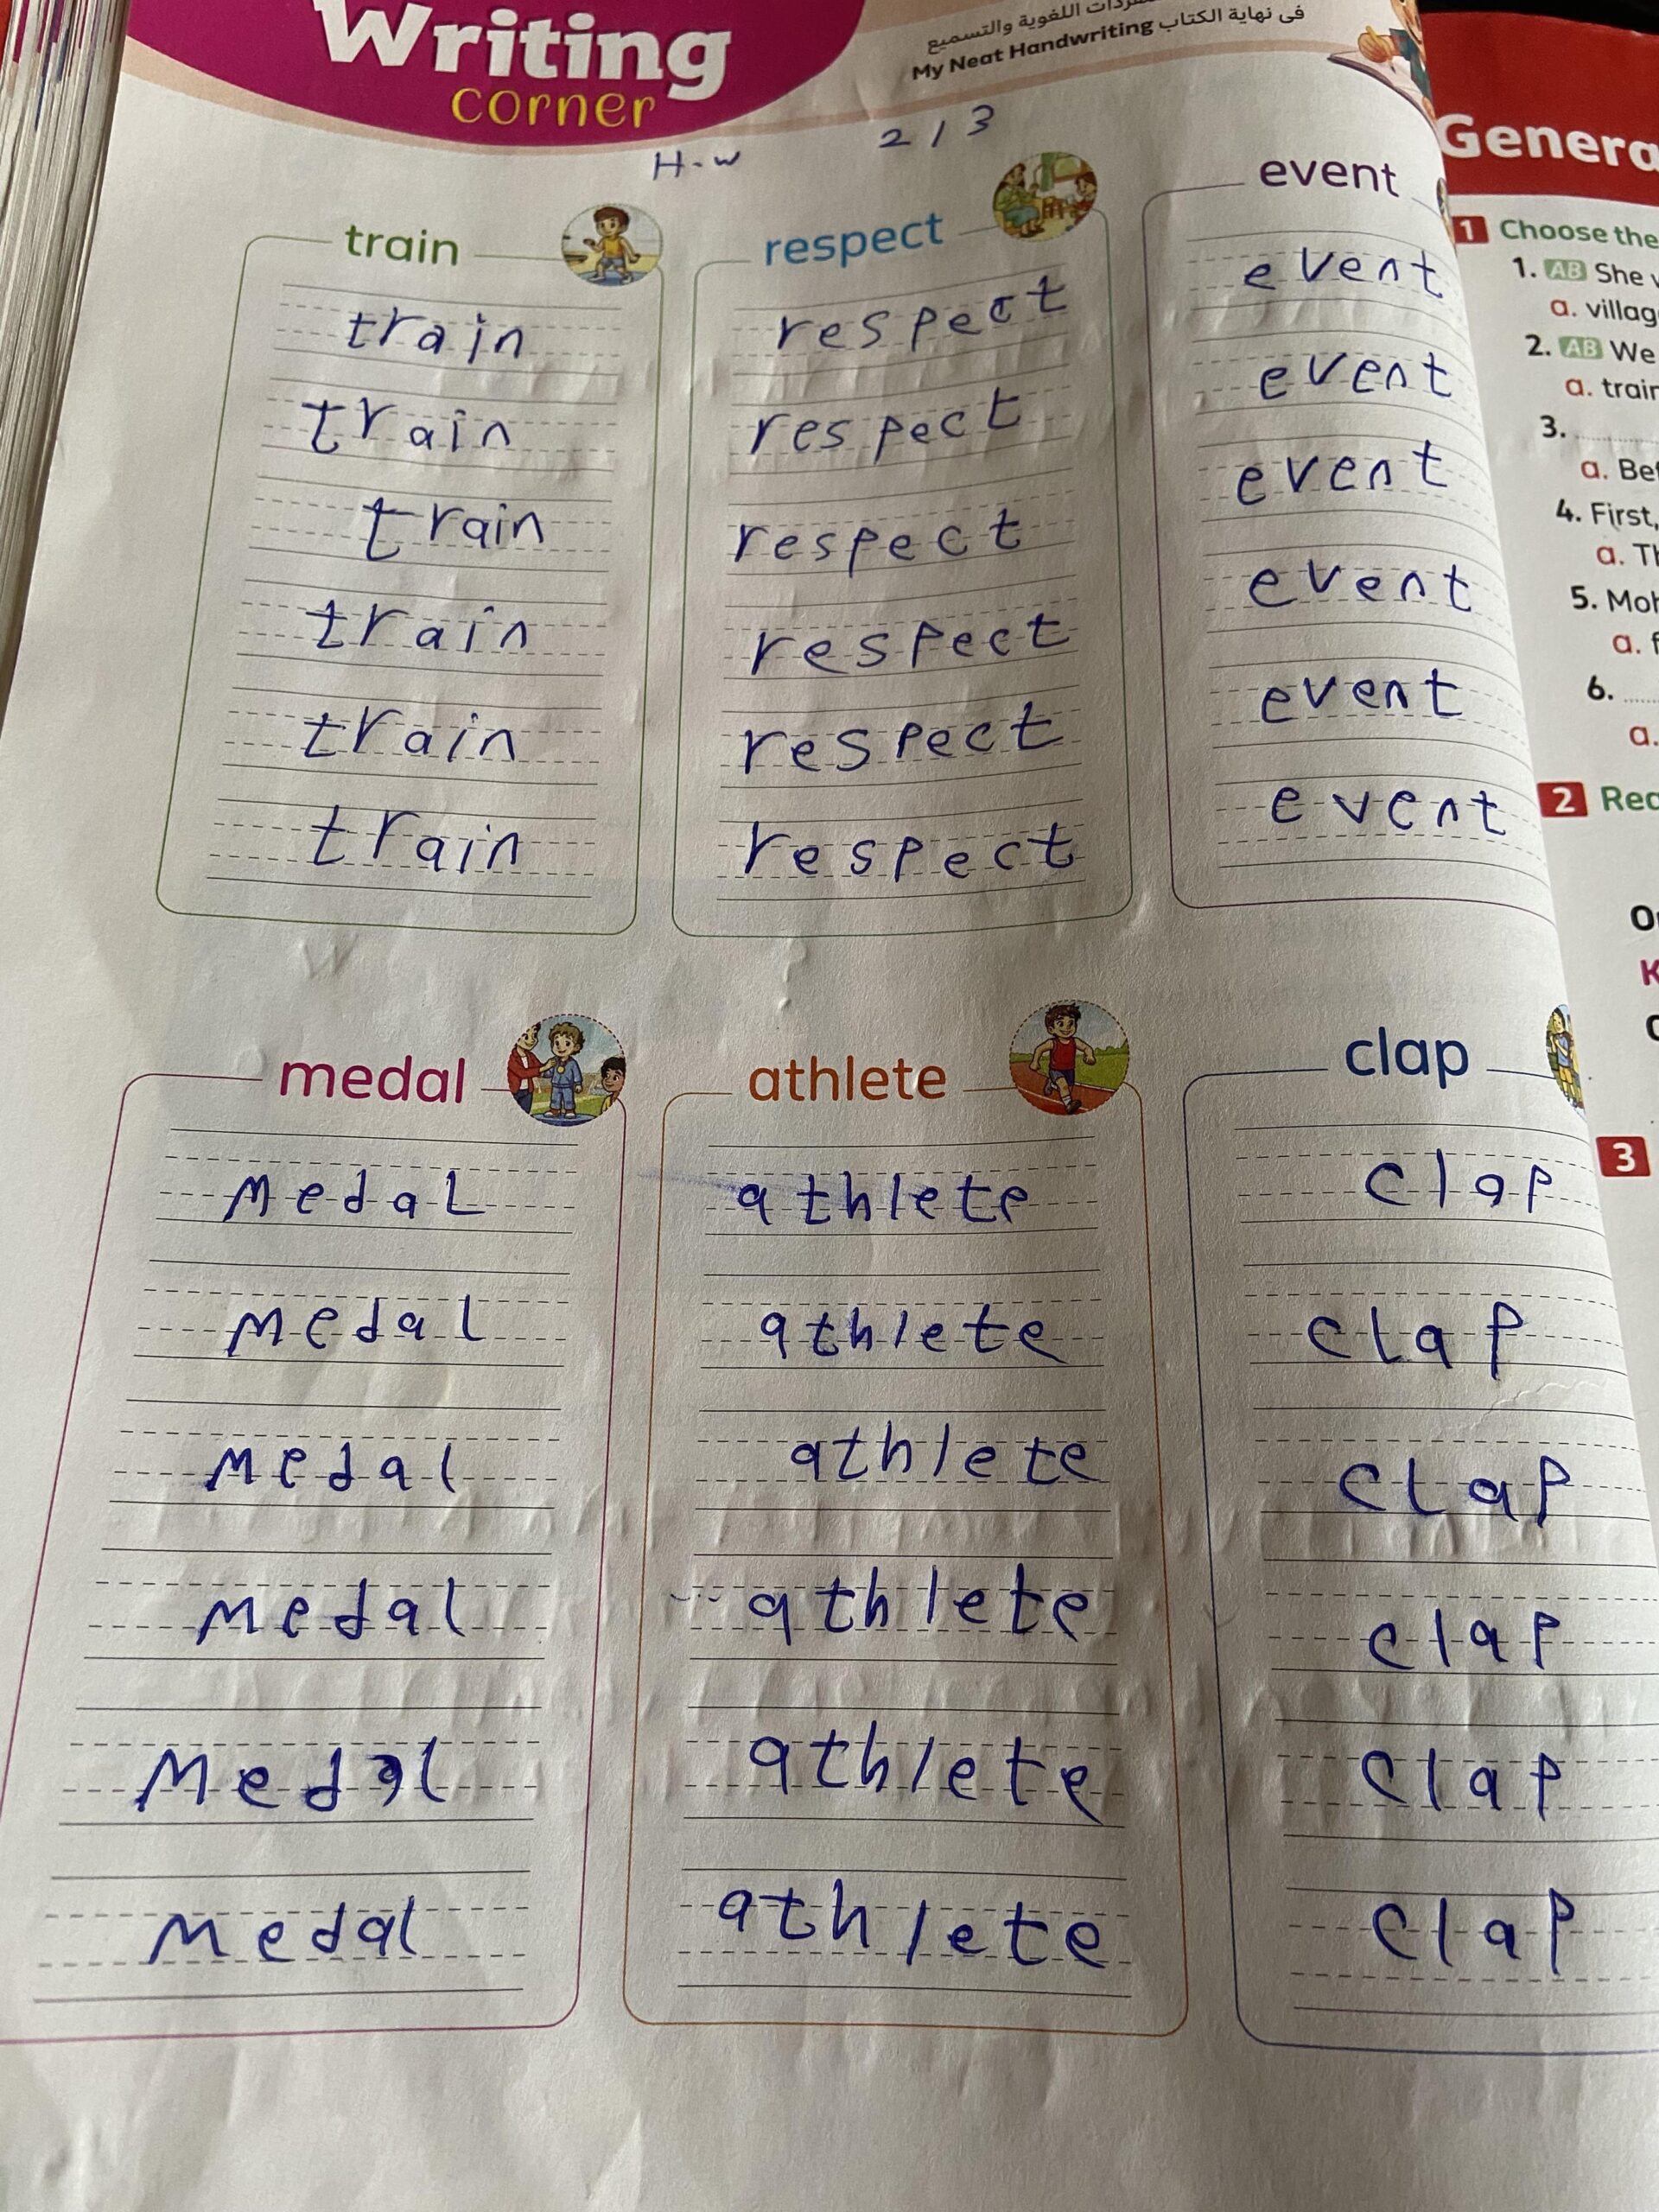 Writing
corner
اللغوية والتسميع
فى نهاية الكتاب My Neat Handwriting
H-w 2/3
train
train
train
train
train
train
train
respect
respect
respect
respect
respect
respect
respect
event
event
event
event
event
event
event
medal
medaL
medal
medal
medal
medal
medal
athlete
athlete
athlete
athlete
athlete
athlete
athlete
clap
clap
clap
clap
clap
clap
clap
Genera
1 Choose the
1. AB She
a. villag
2. AB We
a. train
3.
a. Bef
4. First,
a. Th
5. Moh
a. f
6.
a.
2 Rea
3